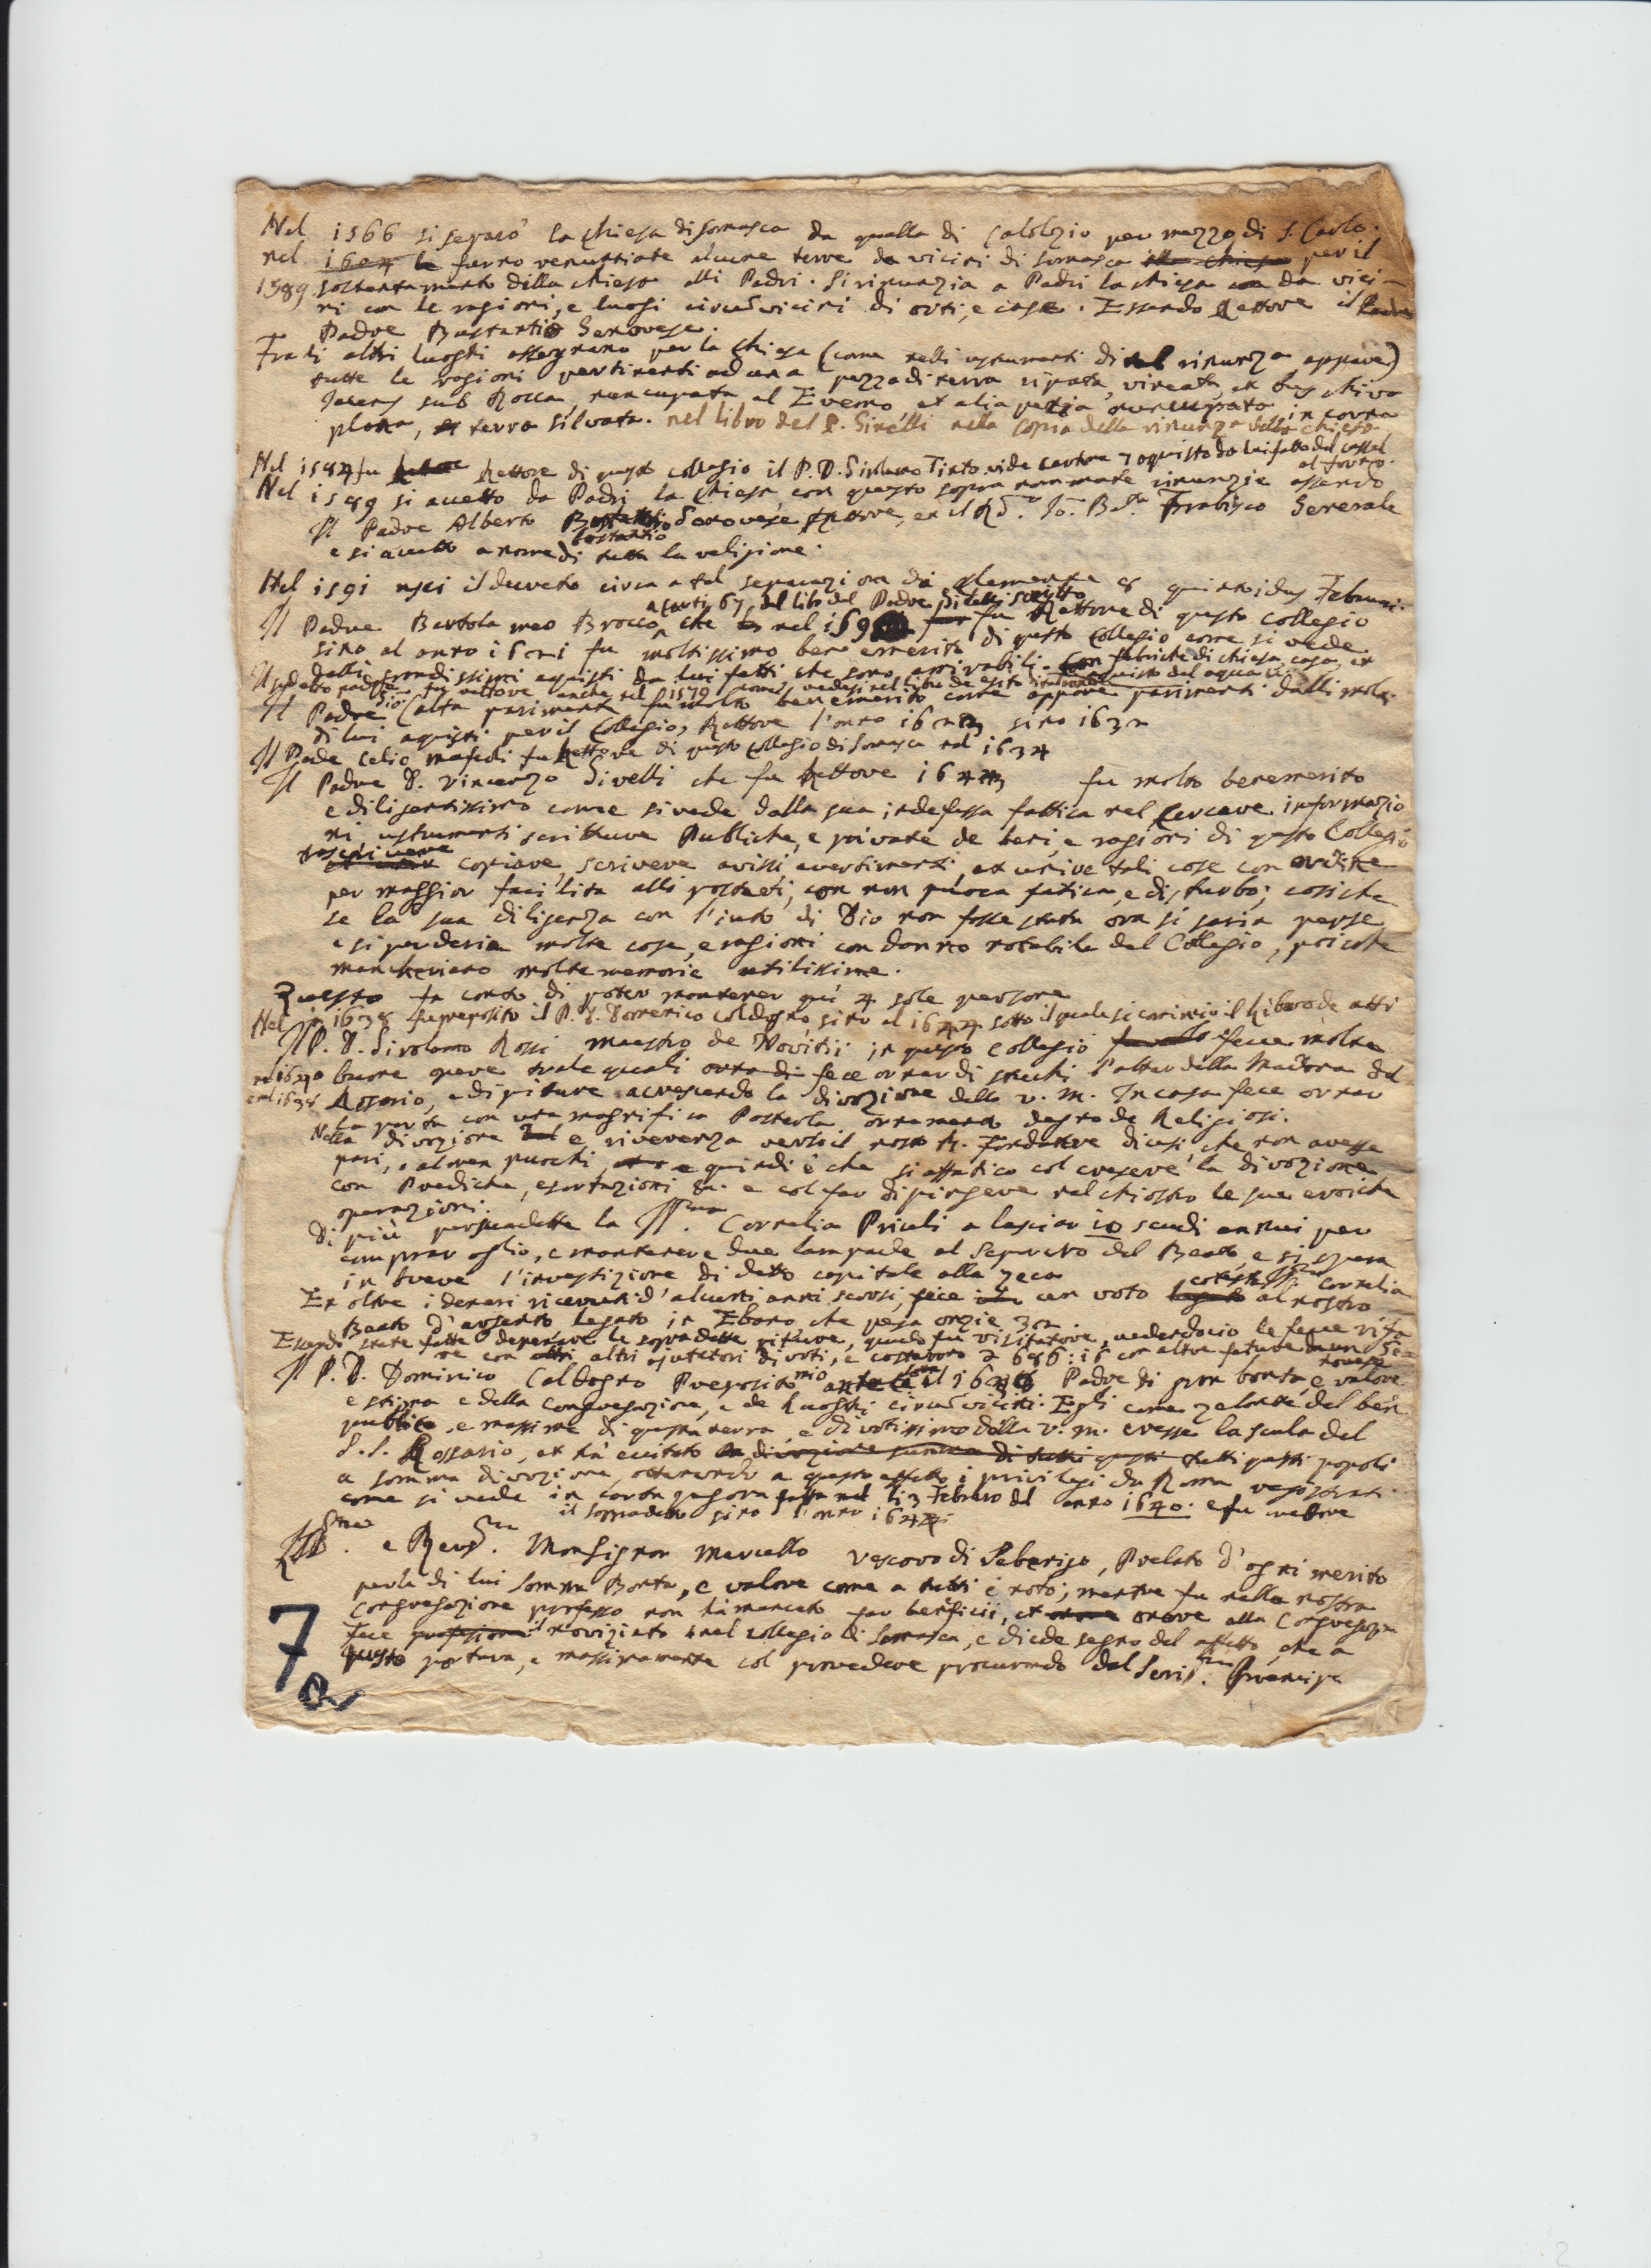 Nel 1566 si separò la chiesa di somasca da quella di Calolzio per mezzo di S. Carlo.
nel 1604 le furno renuntiate alcune terre da vicini di somasca alla chiesa per il
1589 sostentamento della chiesa alli Padri. Si rinunzia a Padri la chiesa da vici-
ni con le ragioni, e luoghi circumvicini di orti, e case. Essendo Rettore il Padre
Padre Genovese.
Fra li altri luoghi assegnano per la chiesa (come nelli instrumenti di rinunza appare)
tutte le ragioni pertinenti ad una pezza di terra ripata, vineata, et
Iacens sub Rocca, nuncupata al Evemo, et alia petia nuncupata in corna
plana, et terra silvata. nel libro del P. Girelli nella copia della rinunza della chiesa
Nel 1584 fu Rettore di questo collegio il P. D. Girolamo Tinto vide cartone 7 aquisto da lui fatto del
al forno.
Nel 1589 si accettò da Padri la chiesa con queste sopra nominate rinunzie essendo
Il Padre Alberto Genovese Rettore, et il Rdo. Io. Bta. Generale
e si accettò a nome di tutta la religione.
Nel 1591 usci il decreto circa a tal separazione di Clemente 8 quinto idus Februari.
a carti 67, del libro del Padre Sitelli scritto
Il Padre Bartolameo Brocco che nel 159 fu Rettore di questo collegio
sino al anno 1601 fu moltissimo benemerito di questo Collegio come si vede
dalli grandissimi aquisti da lui fatti, che sono con fabriche di chiesa, casa, et
Il sudetto padre fu rettore anche nel 1579 come vedesi nel libro de
Il Padre Gio: Calta parimente fu molto benemerito come appare parimenti dalli molti
di lui aquisti per il Collegio, Rettore l'anno 162 sino 1632
Il Pade Celio fu Rettore di questo Collegio di Somasca nel 1634
Il Padre D. Vincenzo Girelli che fu Rettore 1644 fu molto benemerito
e diligentissimo come si vede dalla sua indefessa fattica nel cercare informazio
ni instrumenti scritture Publiche, e private de beni, e ragioni di questo Collegio
trascrivere copiare, scrivere avissi avertimenti, et unire tali cose con ordine
per maggior facilità alli posteri, con non puoca fatica, e disturbo; cosiche
se la sua diligenza con l'iuto di Dio non fosse stata ora si saria perse
e si perderia molte cose, e ragioni con danno notabile del Collegio, poiche
mancheriano molte memorie utilissime.
Questo fa conto di poter mantener quì 4 sole persone
Nel 1638 fu preposito il P. D. Domenico Caldogno sino al 1644 sotto il quale si cominciò il Libro de atti
Il P. D. Girolamo Rossi maestro de Novitii in questo Collegio fece molte
nel 1640 buone opere trale quali fece ornar di stucchi l'altar della Madona del
e nel 1638 Rosario, e di piture accrescendo la divozione della V. M. In casa fece ornar
la porta con una magnifica ornamento degno de Religiosi.
Nella divozione e riverenza verso il nostro P. Fondatore dicesi, che non avesse
pari, o almen puochi, e quindi è che si affatico col cresere la divozione
con Prediche, esortazioni &c. e col far dipingere nel chiostro le sue eroiche
operazioni.
Di più persuadette la Illma. Cornelia Priuli a lasciar 10 scudi annui per
comprar oglio, e mantenere due lampade al Sepulcro del Beato, e si spera
in breve l'investizione di detto capitale alla zeca
Et oltre i denari ricevuti d'alcuni anni scorsi, fece un voto al nostro
Beato d'argento legato in Ebano, che pesa onzie 32.
Essendo state fatte deperire le sopradette piture, quando fu visitatore, vedendocio le fece rifa
re con altri ajutatori divoti, e costarono 686:16 con altre fature
Il P. D. Dominico Caldogno Preposito 1640 Padre di gran bontà, e valore
e stima e della Congregazione, e de luoghi circumvicini. Egli come zelante del ben
publico, e massime di questa terra, e divotissimo della V. M. eresse la scola del
S. S. Rossario, et hà eccitato la divozione tutti questi popoli
a somma divozione, ottenendo a questo effetto i privilegi da Roma registrati
come si vede in carta pagora fatta nel li 3 Febraro del anno 1640. e fu rettore
il sopradetto sino l'anno 1644.
Illmo. e Revmo. Monsignor Marcello Vescovo di Sebenigo, Prelato d'ogni merito
per la di lui somma Bontà, e valore come a tutti è noto; mentre fu nella nostra
Congregazione professo non hà mancato far benficii, et onore alla Congregazn
fece il noviziato nel collegio di Somasca, e diede segno del affetto, che a
questo portava, e massimamente col provedere procurando dal Seris.mo Prencipe
7
a